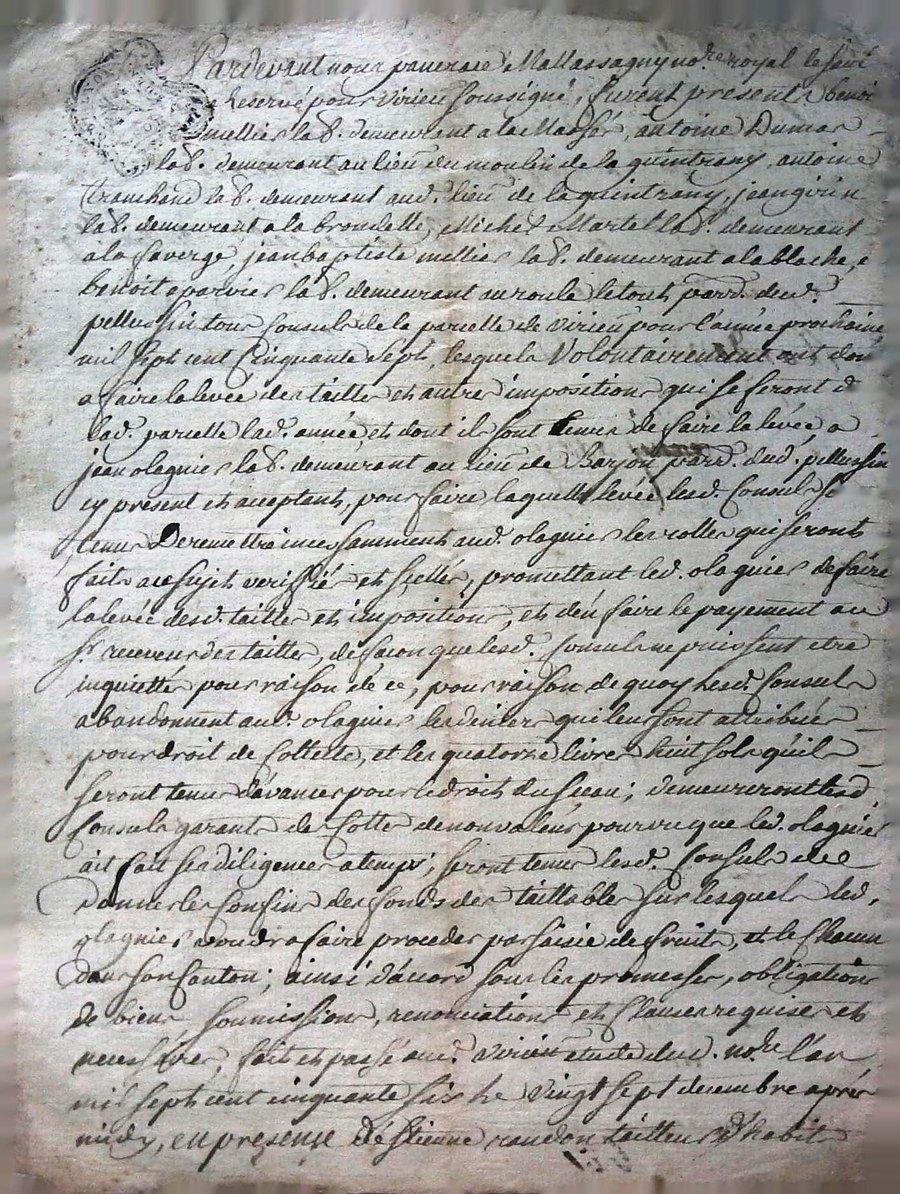 Pardevant nous pancrace Mallassagny no.re royal le seul
Reservé pour Virieu soussigné, furent presents benoit
mellier lab. demeurant a la Massé, antoine Dumas
lab. demeurant au lieu du moulin de la quintrany, antoine
tranchand lab. demeurant aud. lieu de la quintrany, jean girin
lab. demeurant a la brondelle, Michel Martel lab. demeurant
a la faverge jean baptiste mellier lab. demeurant a la blache, e
benoit aparvier lab. demeurant au roule le tout parr. dud.
pellussin tous Consuls de la parcelle de Virieu pour l'année prochaine
mil sept cent Cinquante sept, lesquels Volontairement ont don
a faire la levée des tailles et autres impositions qui se feront d
lad. parcelle lad. année, et dont ils sont tenus de faire la levée, a
jean olagnier lab. demeurant au lieu de Barjon parr. dud. pellussin
cy present et acceptant, pour faire laquelle levée lesd. Consuls se
tenus De remettre incessamment aud. olagnier les rolles qui seront
faits au sujet verifiés et scellés, promettant led. olagnier de faire
la levée desd. tailles et impositions, et d'en faire le payement au
Sr. receveur des tailles, de facon que lesd. Consuls ne puissent etre
inquiettés pour raison de ce, pour raison de quoy lesd. Consuls
abandonnent aud. olagnier les deniers qui leur sont attribués
pour droit de Collecte, et les quatorze livres huit sols qu'ils
seront tenus d'avancer pour le droit du sceau; demeureront lesd.
Consuls garants des Cottes de non valeur pourvu que led. olagnier
ait fait ses diligences a temps, seront tenus lesd. Consuls de
Donner les Confins des fonds des taillables sur lesquels led.
olagnier voudra faire proceder par saisie de fruits, et le Chacun
dans son Canton; ainsi d'acord sous les promesses, obligations
de biens, soumissions, renonciations et Clauses requises et
necessaires, fait et passé aud. Virieu etude dud. no.re l'an
mil sept cent cinquante six le Vingt sept decembre aprés
midy, en presence D'Estienne randon tailleur d'habits